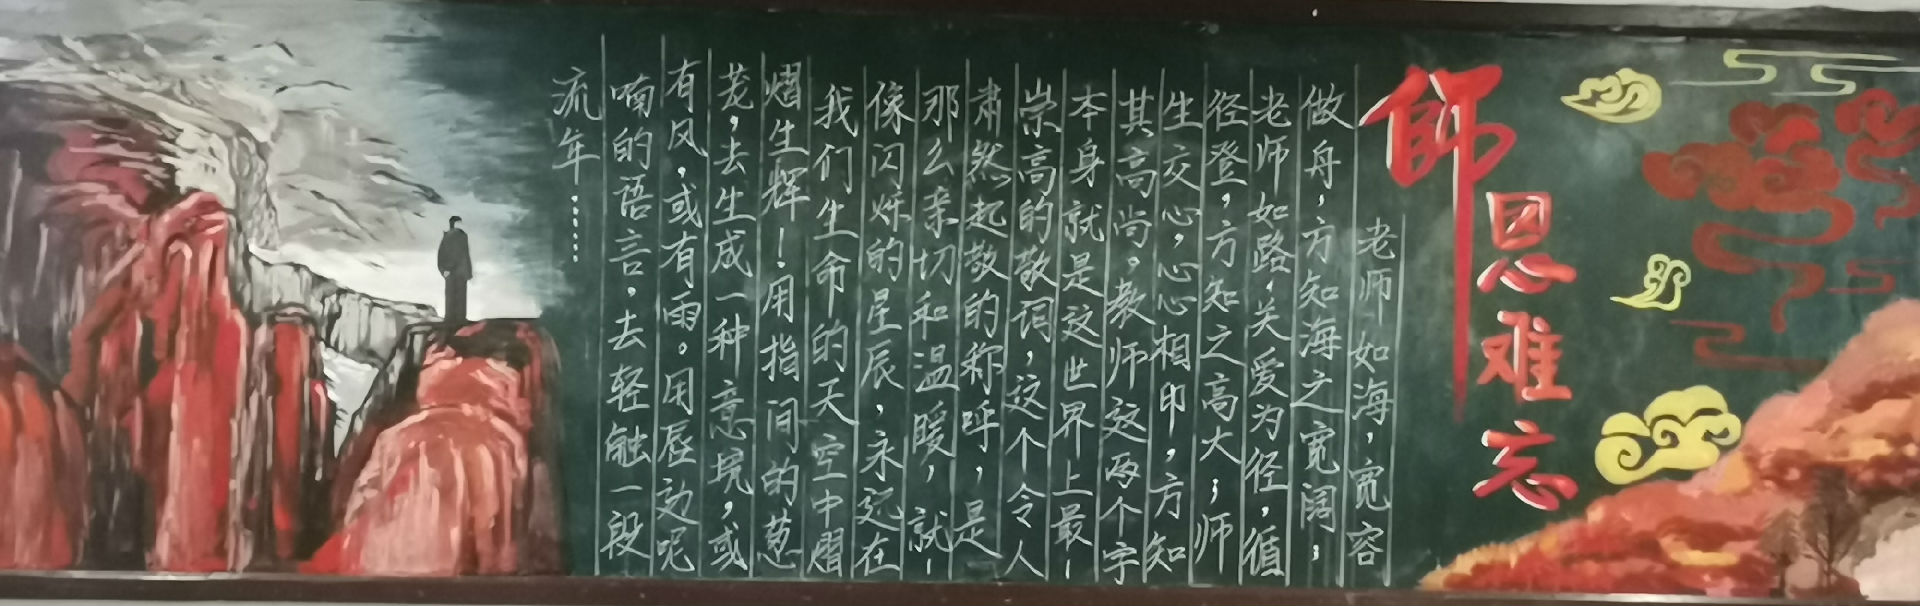 師恩难忘
老师如海，宽容
做舟，方知海之宽阔；
老师如路，关爱为径，循
径登，方知之高大；师
生交心，心心相印，方知
其高尚。教师这两个字
本身就是这世界上最
崇高的敬词，这个令人
肃然起敬的称呼，是
那么亲切和温暖，就
像闪烁的星辰，永远在
我们生命的天空中熠
熠生辉！用指间的葱
茏，去生成一种意境，或
有风，或有雨。用唇边呢
喃的语言，去轻触一段
流年……